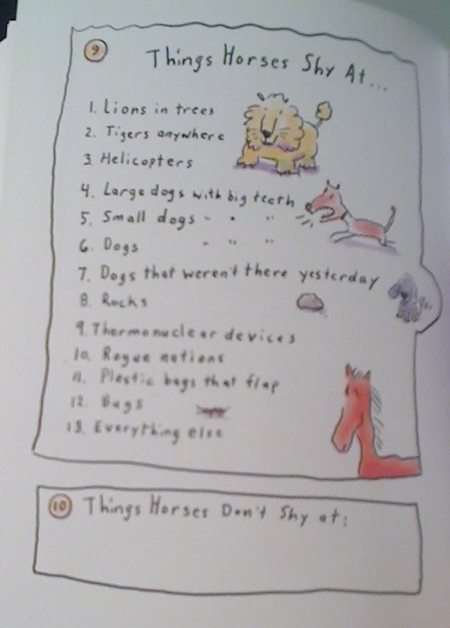 9 Things Horses Shy At...
1. Lions in trees
2. Tigers anywhere
3. Helicopters
4. Large dogs with big teeth
5. Small dogs " " "
6. Dogs " " "
7. Dogs that weren't there yesterday
8. Rocks
9. Thermonuclear devices
10. Rogue nations
11. Plastic bags that flap
12. Bugs
13. Everything else
10 Things Horses Don't Shy at: